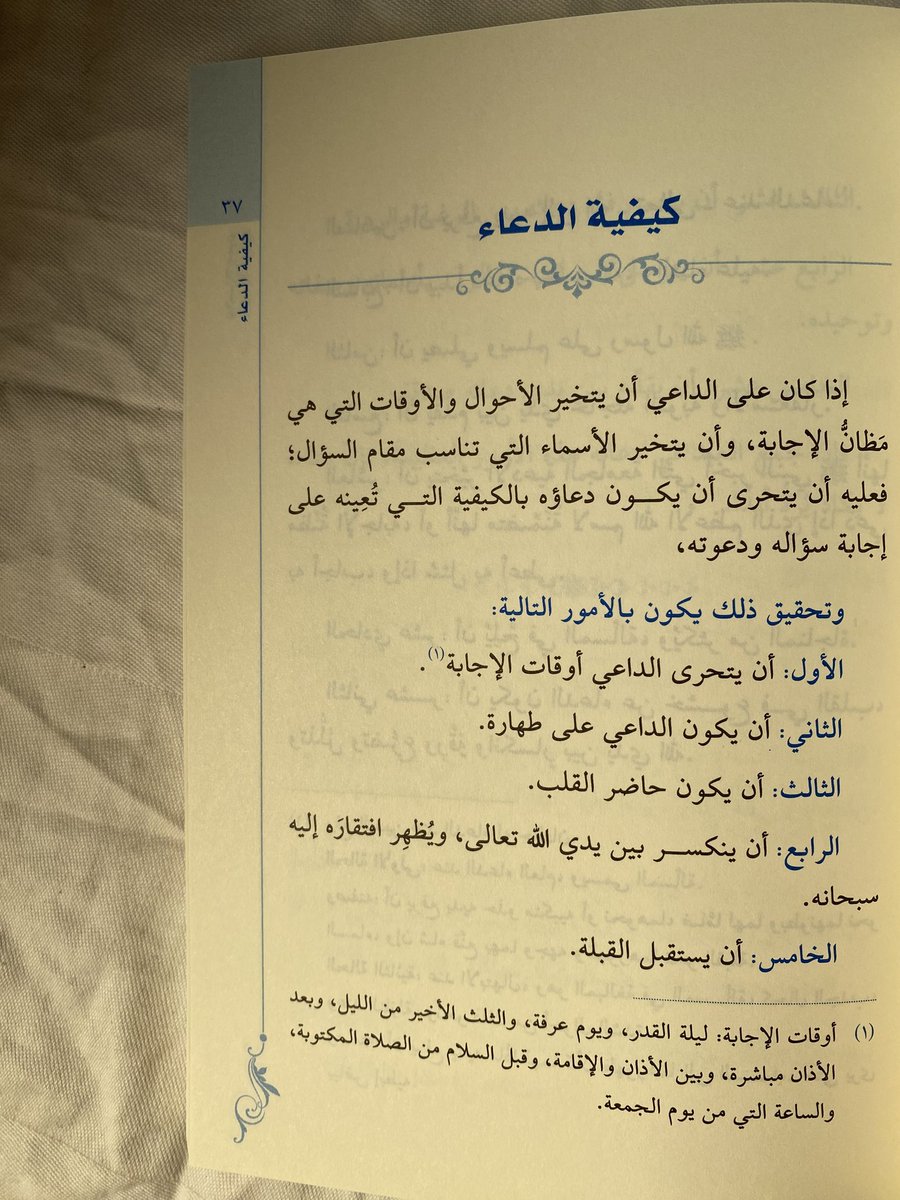 ٣٧
كيفية الدعاء
كيفية الدعاء
إذا كان على الداعي أن يتخير الأحوال والأوقات التي هي
مَظانُّ الإجابة، وأن يتخير الأسماء التي تناسب مقام السؤال؛
فعليه أن يتحرى أن يكـــون دعاؤه بالكيفية التـــي تُعِينه على
إجابة سؤاله ودعوته،
وتحقيق ذلك يكون بالأمور التالية:
الأول: أن يتحرى الداعي أوقات الإجابة(١).
الثاني: أن يكون الداعي على طهارة.
الثالث: أن يكون حاضر القلب.
الرابع: أن ينكســـر بين يدي الله تعالى، ويُظهِر افتقارَه إليه
سبحانه.
الخامس: أن يستقبل القبلة.
(١) أوقات الإجابة: ليلة القدر، ويوم عرفة، والثلث الأخير من الليل، وبعد
الأذان مباشرة، وبين الأذان والإقامة، وقبل السلام من الصلاة المكتوبة،
والساعة التي من يوم الجمعة.